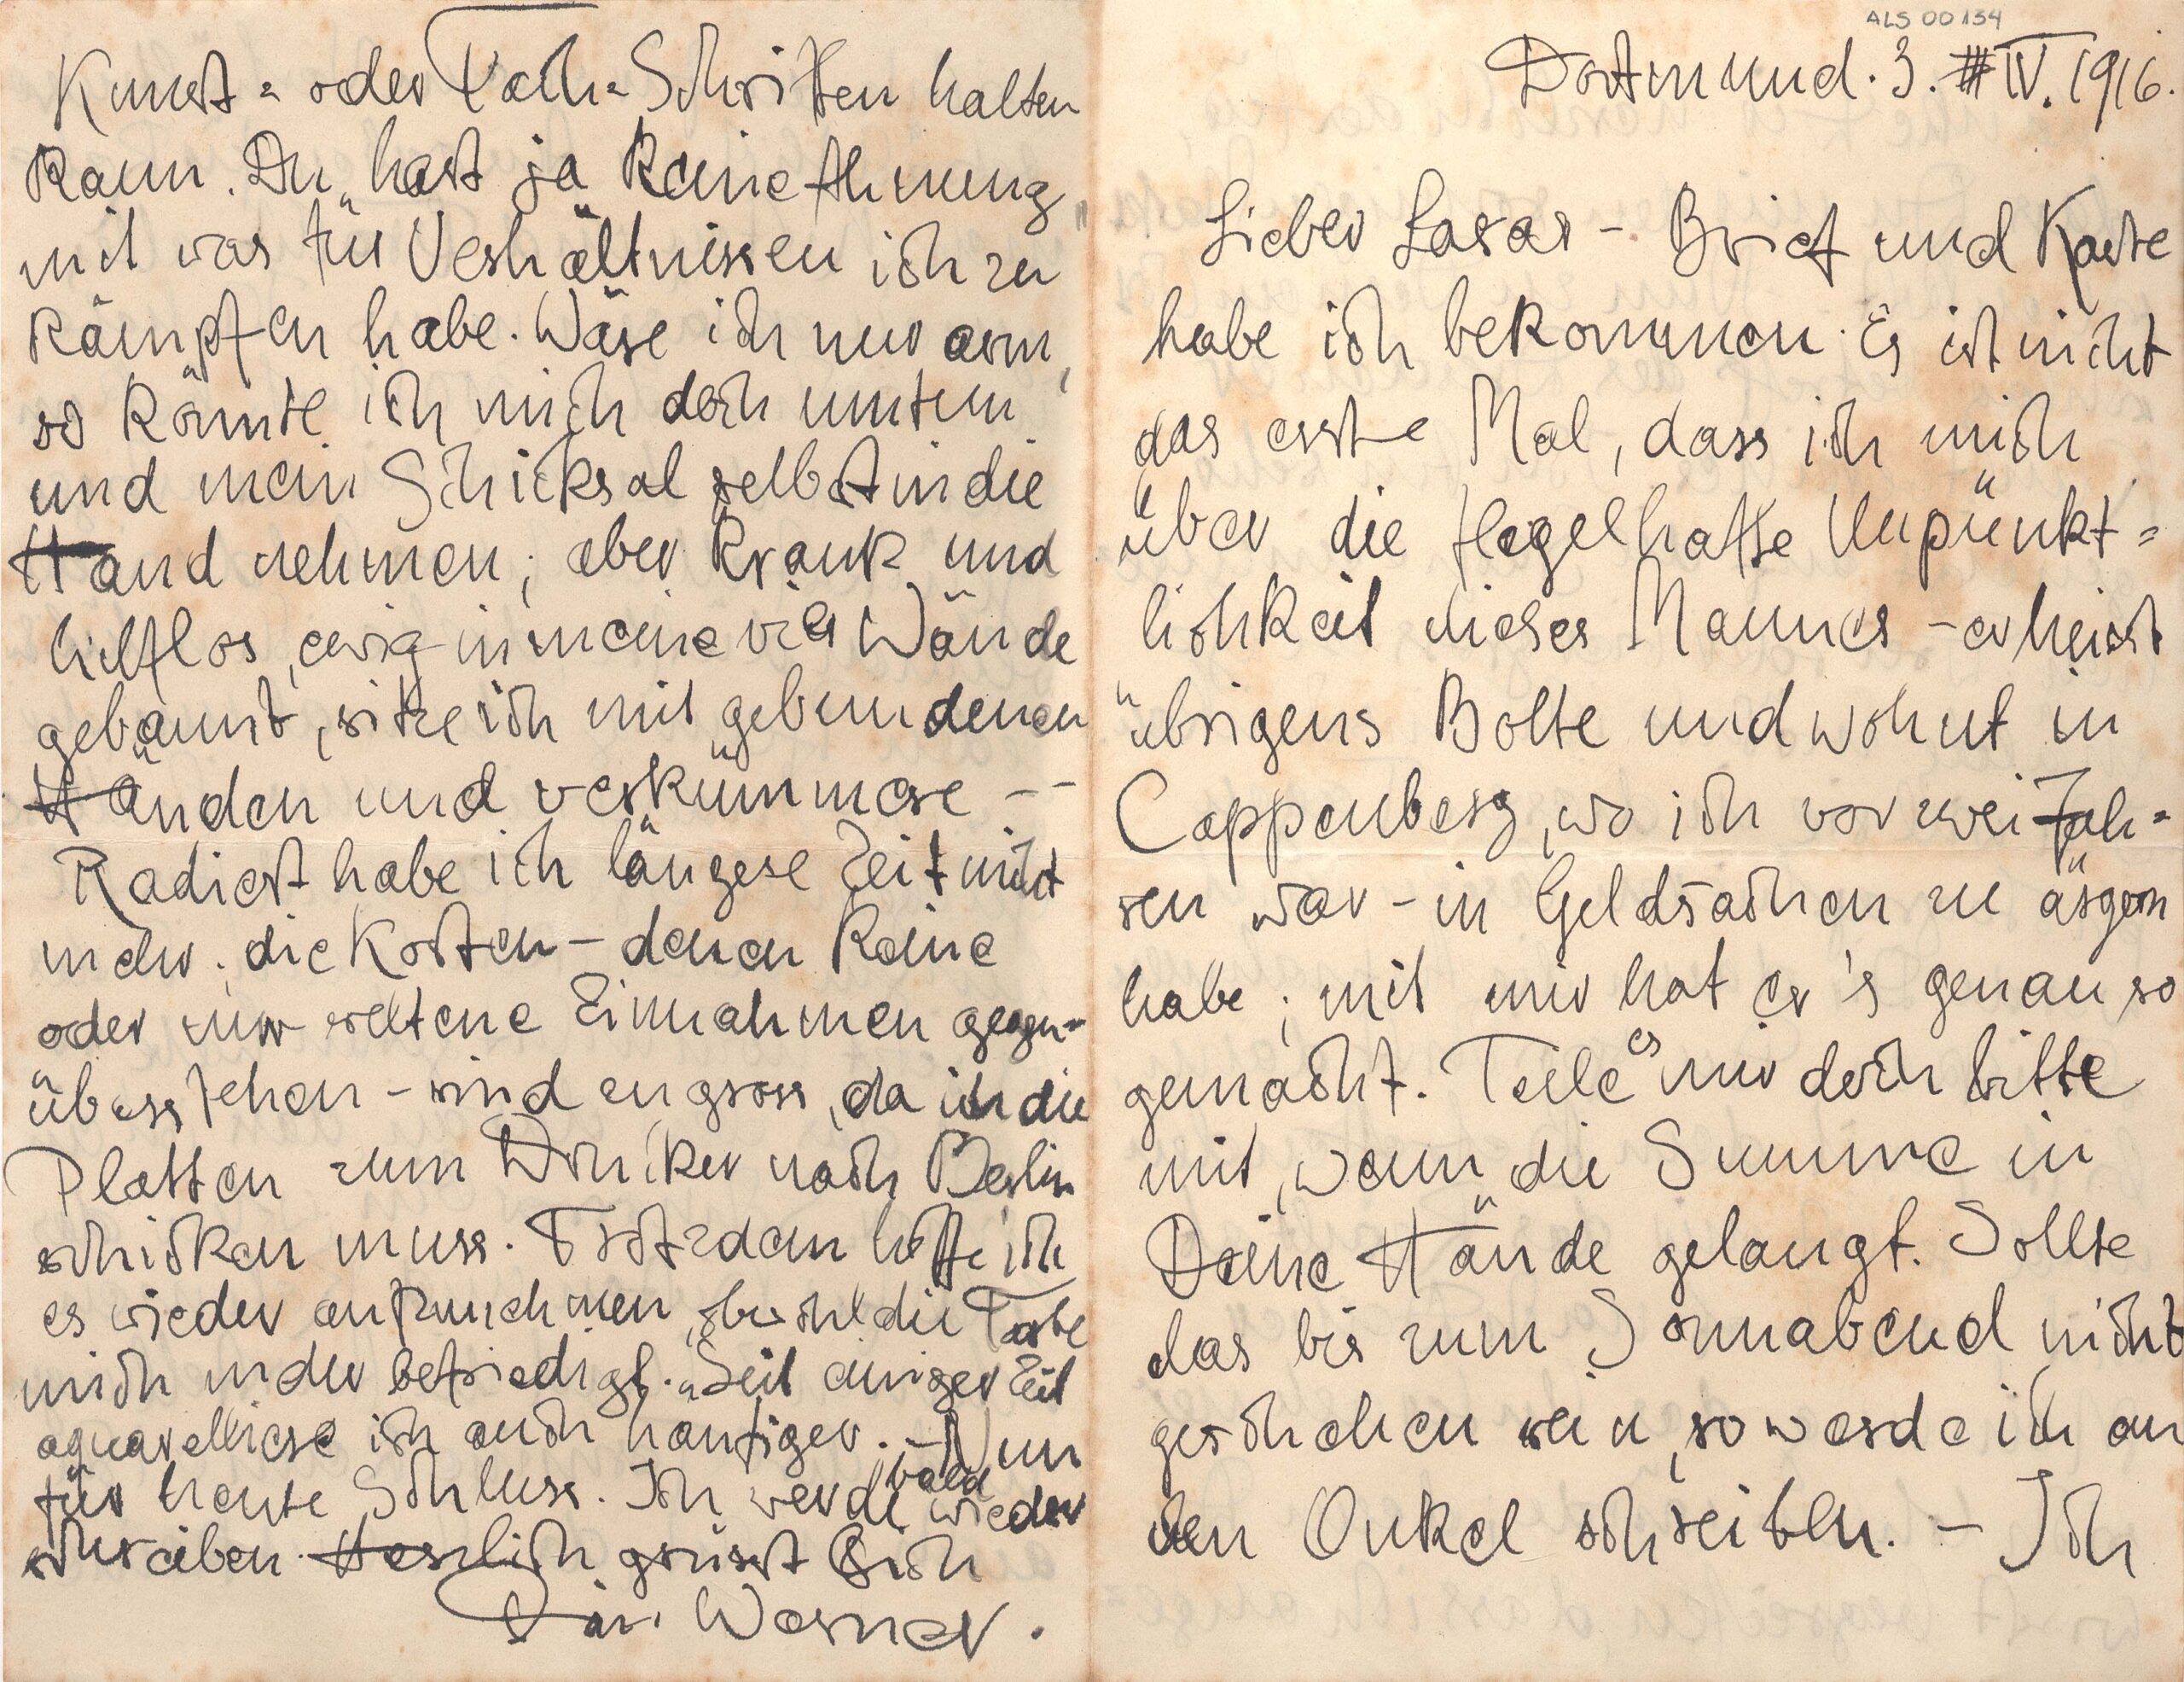 ALS 00134
Dortmund. 3. IV. 1916.
Lieber Lasar – Brief und Karte
habe ich bekommen. Es ist nicht
das erste Mal, dass ich mich
über die flegelhafte Unpünkt=
lichkeit dieses Mannes – er heisst
übrigens Bolte und wohnt in
Cappenberg, wo ich vor zwei Jah=
ren war – in Geldsachen zu ärgern
habe; mit mir hat er's genau so
gemacht. Teile es mir doch bitte
mit, wann die Summe in
Deine Hände gelangt. Sollte
das bis zum Sonnabend nicht
geschehen sein, so werde ich an
den Onkel schreiben. – Ich
Kunst= oder Fach=Schriften halten
kann. Du hast ja keine Ahnung,
mit was für Verhältnissen ich zu
kämpfen habe. Wäre ich nur arm,
so könnte ich mich doch umtun
und mein Schicksal selbst in die
Hand nehmen; aber krank und
hilflos, ewig in meine vier Wände
gebannt, sitze ich mit gebundenen
Händen und verkümmere – –
Radiert habe ich längere Zeit nicht
mehr. die Kosten – denen keine
oder nur seltene Einnahmen gegen=
überstehen – sind en gross, da ich die
Platten zum Drucker nach Berlin
schicken muss. Trotzdem hoffe ich
es wieder aufzunehmen, obwohl die Farbe
mich mehr befriedigt. Seit einiger Zeit
aquarelliere ich auch häufiger. – Nun
für heute Schluss. Ich werde bald wieder
schreiben. Herzlich grüsst Dich
Dein Werner.